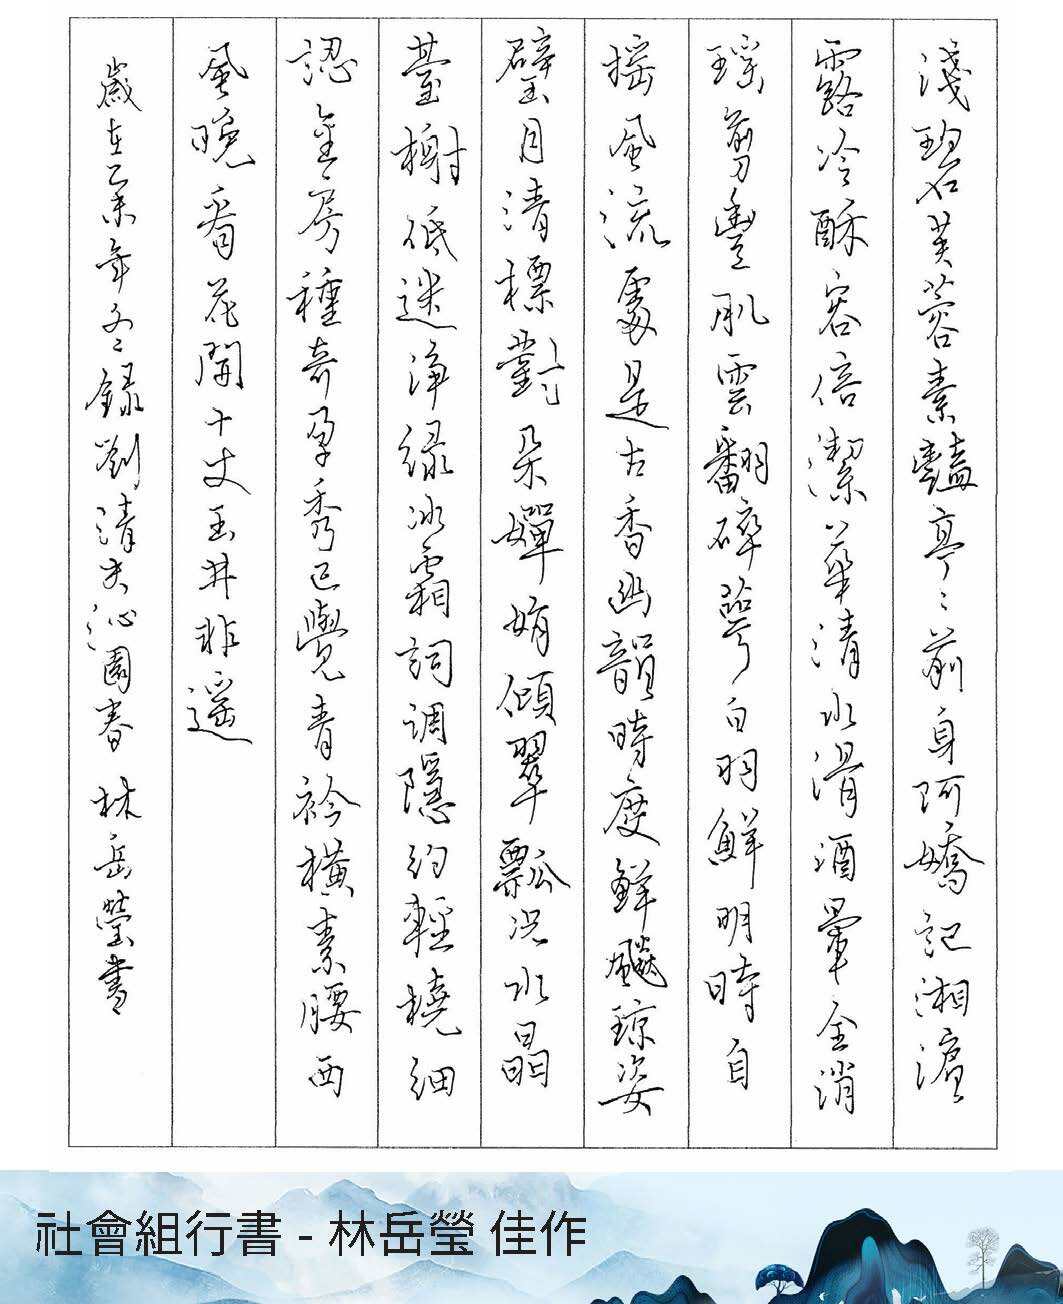 淺碧芙蓉素豔亭〻前身阿嬌記湘濱
露冷酥容倍潔華清水滑酒暈全消
瑤剪豐肌雲翻碎萼白羽鮮明時自
搖風流處是古香幽韻時度鮮飆瓊姿
璧月清標對朵嬋娟傾翠瓢況水晶
臺榭低迷淨綠冰霜詞調隱約輕橈細
認金房種奇孕秀已覺青衿橫素腰西
風晚看花開十丈玉井非遙
歲在乙未年冬錄劉清夫沁園春 林岳瑩書
社會組行書 - 林岳瑩 佳作